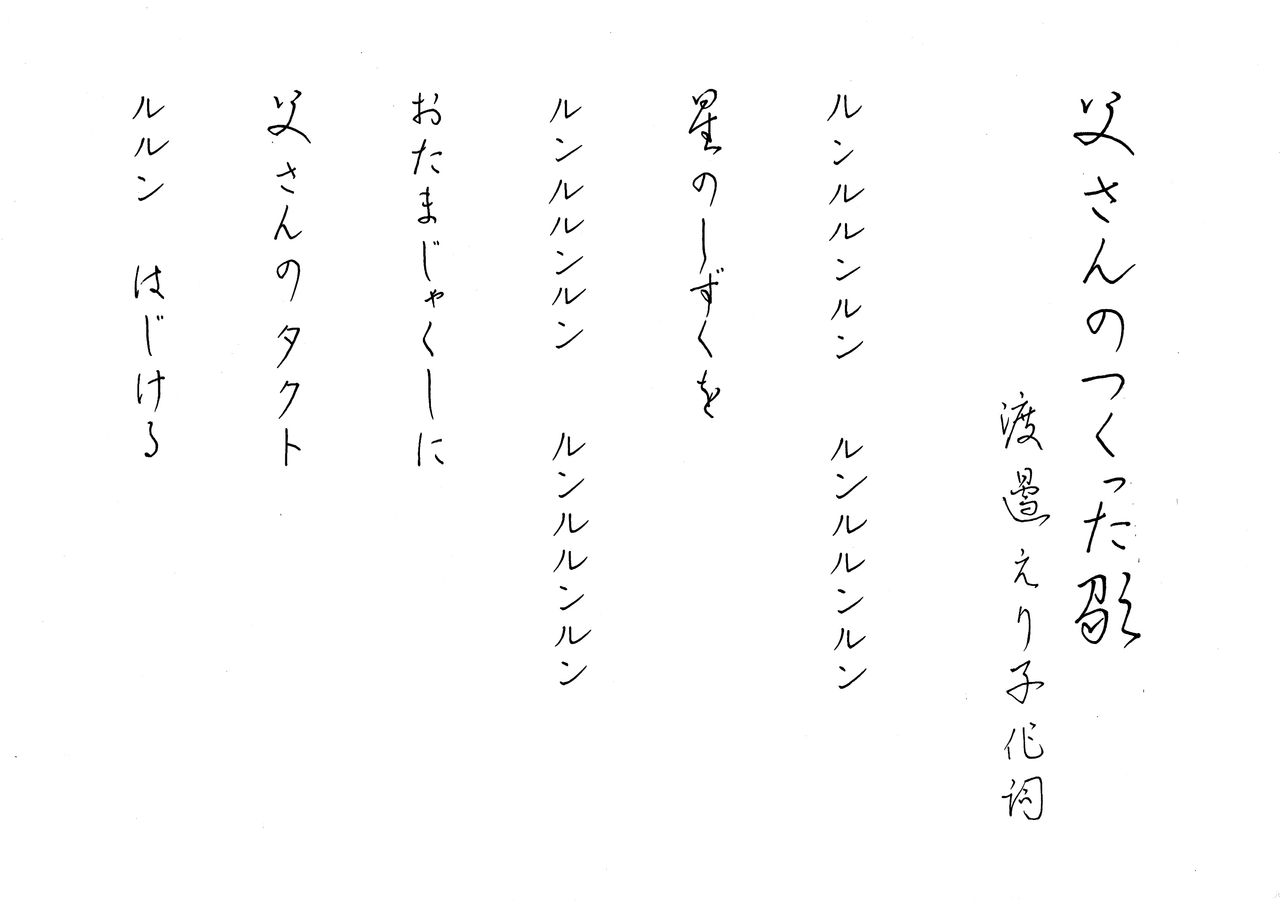 父さんのつくった歌
渡邊えり子作詞
ルンルルンルン　ルンルルンルン
星のしずくを
ルンルルンルン　ルンルルンルン
おたまじゃくしに
父さんのタクト
ルルン　はじける